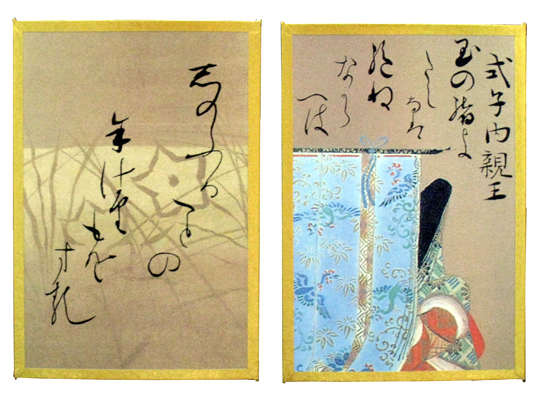 式子内親王
玉の緒よ
たえなは
絶ね
なから
へは
しのふる
ことの
よはり
もそ
する